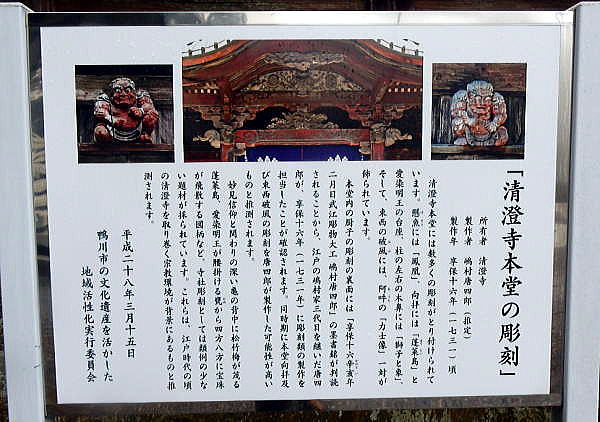 「清澄寺本堂の彫刻」
所有者 清澄寺
製作者 嶋村唐四郎(推定)
製作年 享保十六年(一七三一)頃
清澄寺本堂には数多くの彫刻がとり付けられて
います。懸魚には「鳳凰」、向拝には「蓬莱島」と
愛染明王の台座、柱の左右の木鼻には「獅子と象」、
そして、東西の破風には、阿吽の「力士像」一対が
飾られています。
本堂内の厨子の彫刻の裏面には「享保十六辛亥年
二月日武江彫物大工 嶋村唐四郎」の墨書銘が判読
されることから、江戸の嶋村家三代目を継いだ唐四
郎が、享保十六年(一七三一年)に彫刻類の製作を
担当したことが確認されます。同時期に本堂向拝及
び東西破風の彫刻を唐四郎が製作した可能性が高い
ものと推測されます。
妙見信仰と関わりの深い亀の背中に松竹梅が茂る
蓬莱島、愛染明王が腰掛ける甕から四方八方に宝珠
が飛散する図柄など、寺社彫刻としては類例の少な
い題材が採られています。これらは、江戸時代の頃
の清澄寺を取り巻く宗教環境が背景にあるものと推
測されます。
平成二十八年三月十五日
鴨川市の文化遺産を活かした
地域活性化実行委員会